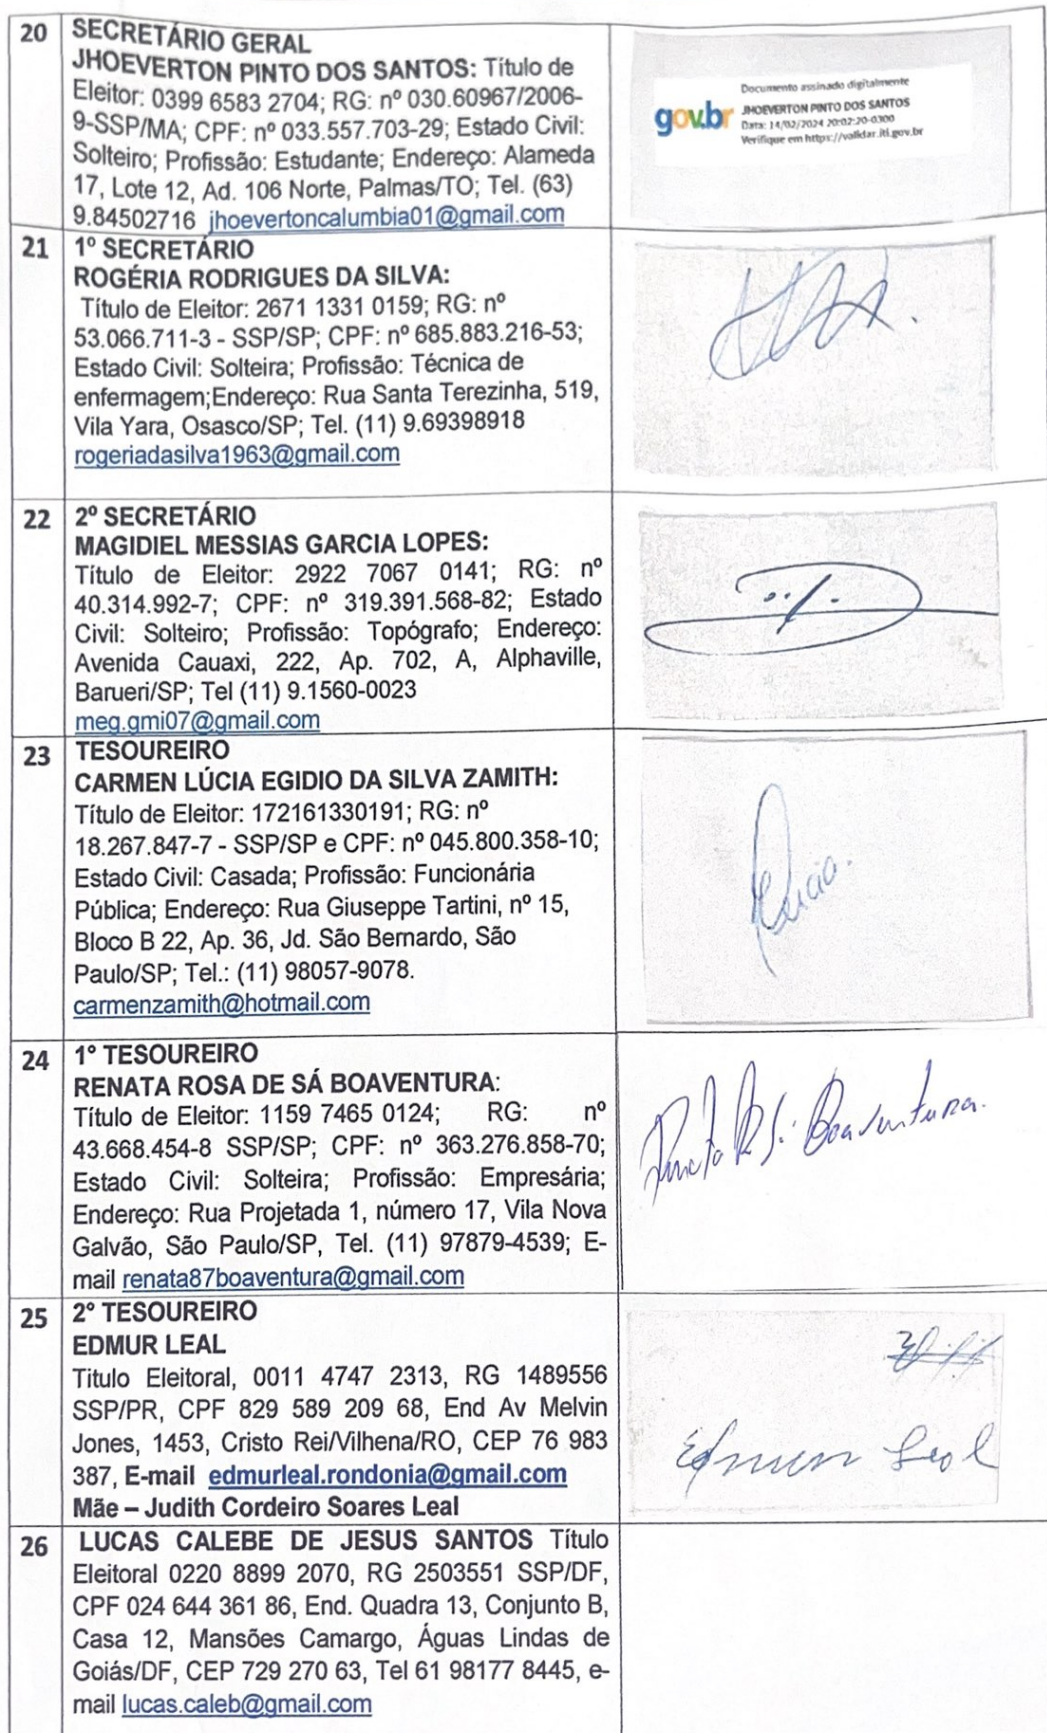 20
SECRETÁRIO GERAL
JHOEVERTON PINTO DOS SANTOS: Título de
Eleitor: 0399 6583 2704; RG: nº 030.60967/2006-
9-SSP/MA; CPF: nº 033.557.703-29; Estado Civil:
Solteiro; Profissão: Estudante; Endereço: Alameda
17, Lote 12, Ad. 106 Norte, Palmas/TO; Tel. (63)
9.84502716 jhoevertoncalumbia01@gmail.com
gov.br
Documento assinado digitalmente
JHOEVERTON PINTO DOS SANTOS
Data: 14/02/2024 20:02:20-0300
Verifique em https://validar.iti.gov.br
21
1º SECRETÁRIO
ROGÉRIA RODRIGUES DA SILVA:
Título de Eleitor: 2671 1331 0159; RG: nº
53.066.711-3 - SSP/SP; CPF: nº 685.883.216-53;
Estado Civil: Solteira; Profissão: Técnica de
enfermagem;Endereço: Rua Santa Terezinha, 519,
Vila Yara, Osasco/SP; Tel. (11) 9.69398918
rogeriadasilva1963@gmail.com
22
2º SECRETÁRIO
MAGIDIEL MESSIAS GARCIA LOPES:
Título de Eleitor: 2922 7067 0141; RG: nº
40.314.992-7; CPF: nº 319.391.568-82; Estado
Civil: Solteiro; Profissão: Topógrafo; Endereço:
Avenida Cauaxi, 222, Ap. 702, A, Alphaville,
Barueri/SP; Tel (11) 9.1560-0023
meg.gmi07@gmail.com
23
TESOUREIRO
CARMEN LÚCIA EGIDIO DA SILVA ZAMITH:
Título de Eleitor: 172161330191; RG: nº
18.267.847-7 - SSP/SP e CPF: nº 045.800.358-10;
Estado Civil: Casada; Profissão: Funcionária
Pública; Endereço: Rua Giuseppe Tartini, nº 15,
Bloco B 22, Ap. 36, Jd. São Bernardo, São
Paulo/SP; Tel.: (11) 98057-9078.
carmenzamith@hotmail.com
24
1º TESOUREIRO
RENATA ROSA DE SÁ BOAVENTURA:
Título de Eleitor: 1159 7465 0124; RG: nº
43.668.454-8 SSP/SP; CPF: nº 363.276.858-70;
Estado Civil: Solteira; Profissão: Empresária;
Endereço: Rua Projetada 1, número 17, Vila Nova
Galvão, São Paulo/SP, Tel. (11) 97879-4539; E-
mail renata87boaventura@gmail.com
Boaventura.
25
2º TESOUREIRO
EDMUR LEAL
Titulo Eleitoral, 0011 4747 2313, RG 1489556
SSP/PR, CPF 829 589 209 68, End Av Melvin
Jones, 1453, Cristo Rei/Vilhena/RO, CEP 76 983
387, E-mail edmurleal.rondonia@gmail.com
Mãe – Judith Cordeiro Soares Leal
Edmur Leal
26
LUCAS CALEBE DE JESUS SANTOS Título
Eleitoral 0220 8899 2070, RG 2503551 SSP/DF,
CPF 024 644 361 86, End. Quadra 13, Conjunto B,
Casa 12, Mansões Camargo, Águas Lindas de
Goiás/DF, CEP 729 270 63, Tel 61 98177 8445, e-
mail lucas.caleb@gmail.com